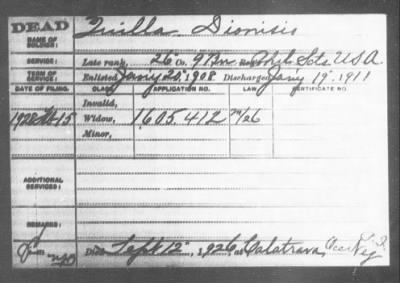 DEAD
NAME OF SOLDIER: Quilla Dionisis
SERVICE: Late rank, 26" Co. Phil. Scts USA
TERM OF SERVICE: Enlisted Jan'y 20", 1908 Discharged Jan'y 19", 1911
DATE OF FILING. CLASS. APPLICATION NO. LAW. CERTIFICATE NO.
Invalid,
1928 15 Widow, 1605412
Minor,
ADDITIONAL SERVICES:
REMARKS:
Died Sept 12", 1926, at Calatrava, Occ. Neg
P.I.